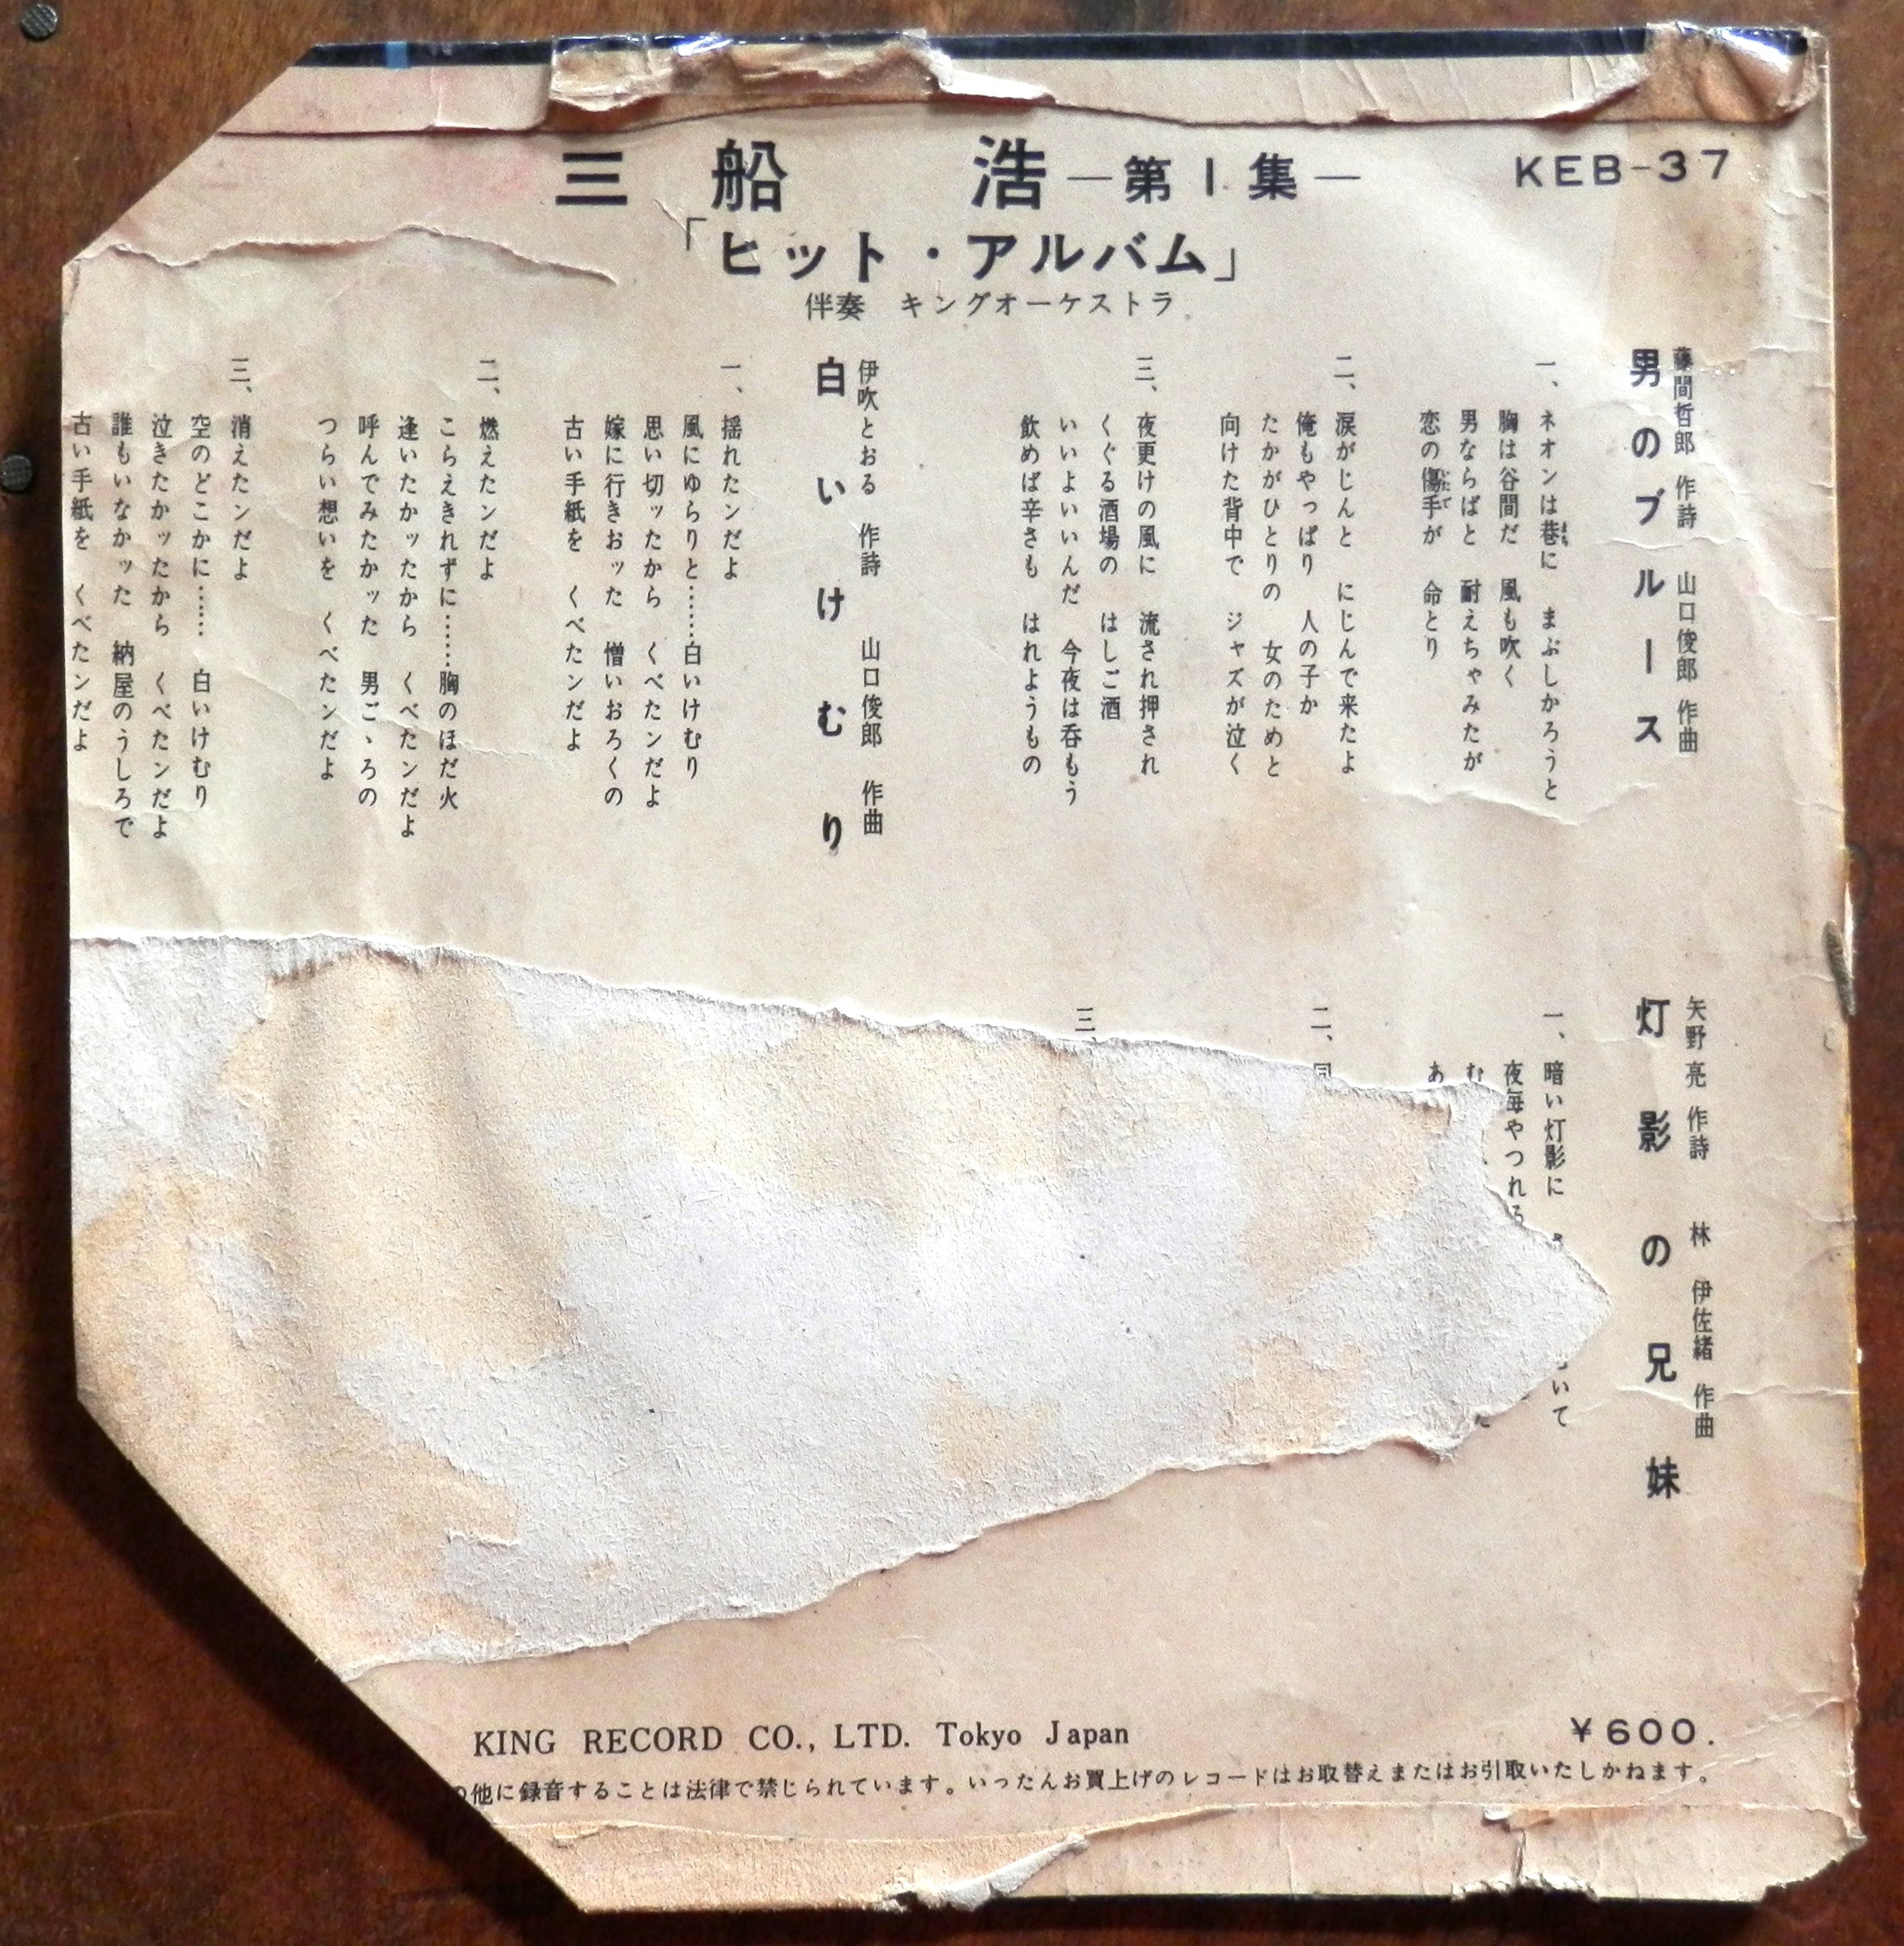 三船 浩 ―第1集―
KEB-37
「ヒット・アルバム」
伴奏 キングオーケストラ
藤間哲郎 作詩 山口俊郎 作曲
男のブルース
一、ネオンは巷に まぶしかろうと
胸は谷間だ 風も吹く
男ならばと 耐えちゃみたが
恋の傷手が 命とり
二、涙がじんと にじんで来たよ
俺もやっぱり 人の子か
たかがひとりの 女のためと
向けた背中で ジャズが泣く
三、夜更けの風に 流され押され
くぐる酒場の はしご酒
いいよいいんだ 今夜は呑もう
飲めば辛さも はれようもの
伊吹とおる 作詩 山口俊郎 作曲
白いけむり
一、揺れたンだよ
風にゆらりと……白いけむり
思い切ッたから くべたンだよ
嫁に行きおッた 憎いおろくの
古い手紙を くべたンだよ
二、燃えたンだよ
こらえきれずに……胸のほだ火
逢いたかッたから くべたンだよ
呼んでみたかッた 男ごゝろの
つらい想いを くべたンだよ
三、消えたンだよ
空のどこかに…… 白いけむり
泣きたかッたから くべたンだよ
誰もいなかッた 納屋のうしろで
古い手紙を くべたンだよ
矢野亮 作詩 林伊佐緒 作曲
灯影の兄妹
一、暗い灯影に
いて
夜毎やつれる
む
あ
二、同
三、
KING RECORD CO., LTD. Tokyo Japan
¥600.
の他に録音することは法律で禁じられています。いったんお買上げのレコードはお取替えまたはお引取いたしかねます。